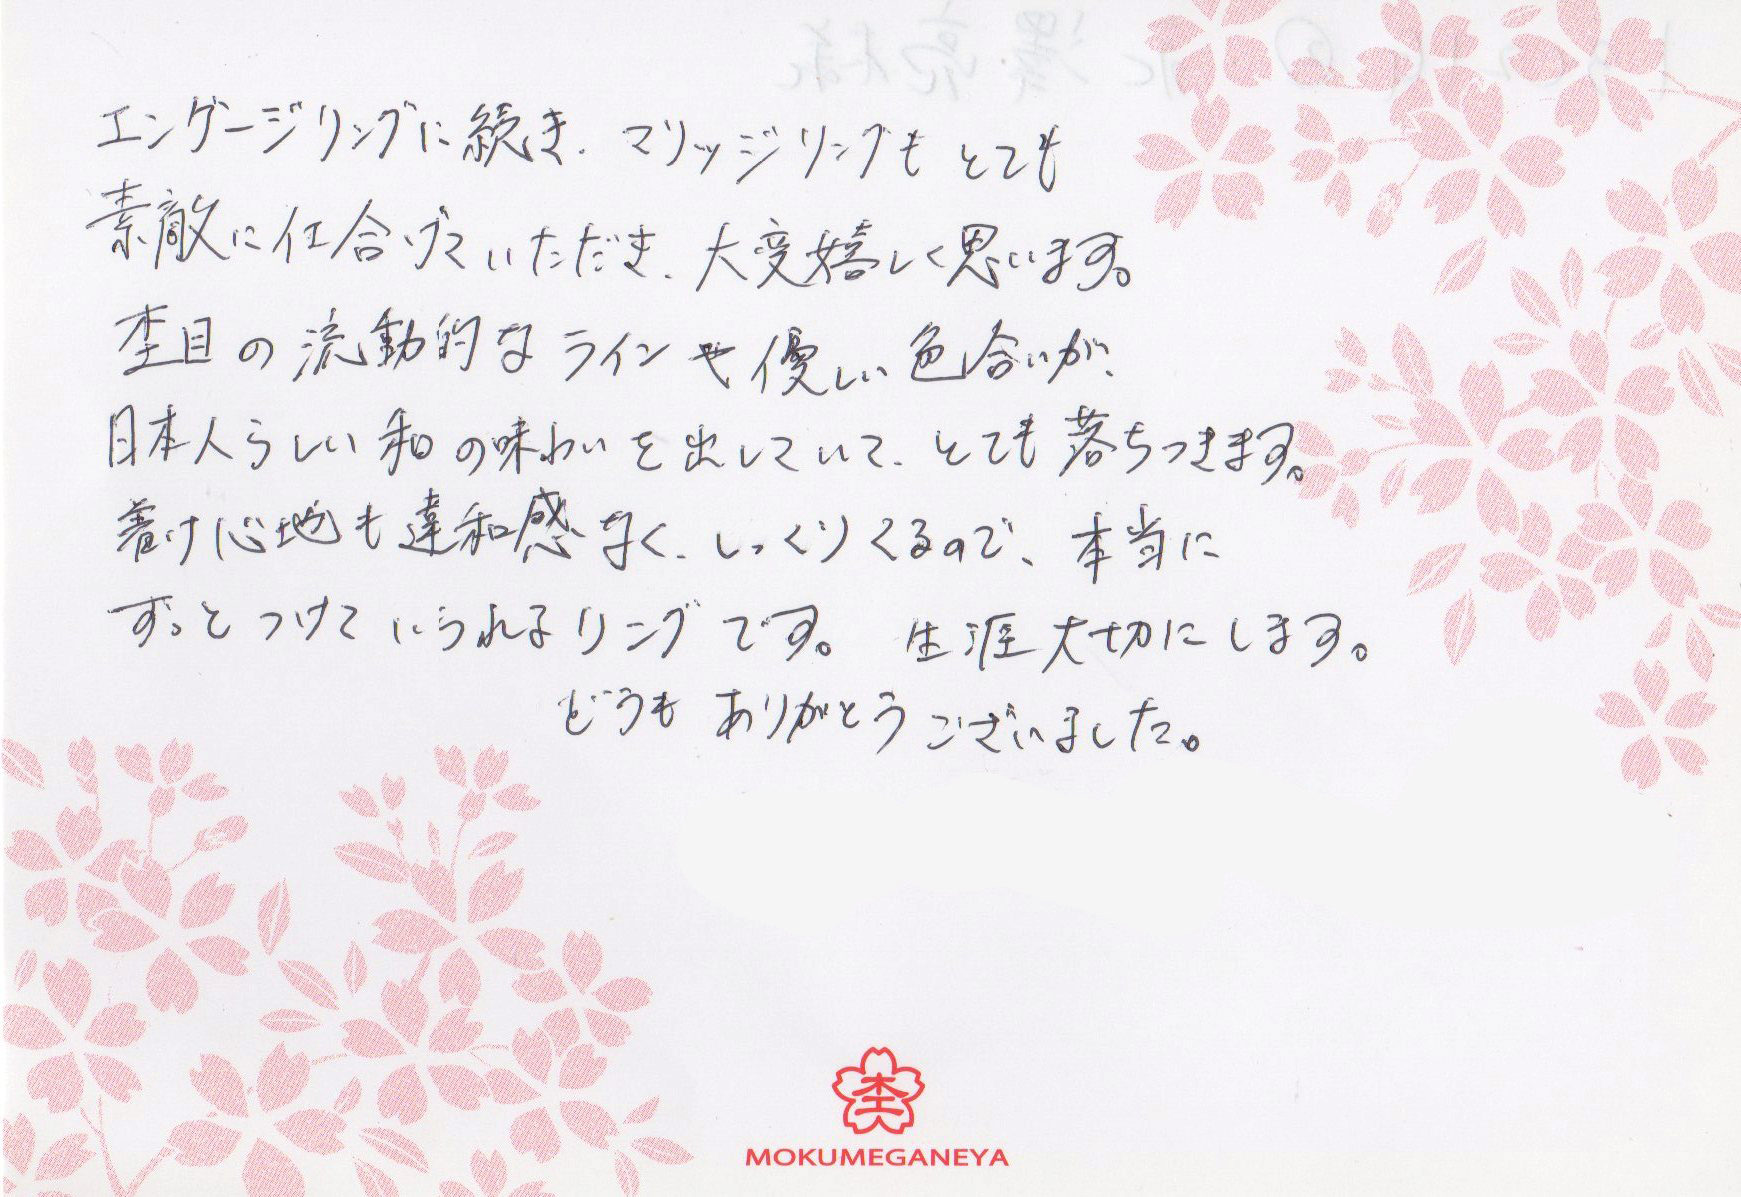 エンゲージリングに続き、マリッジリングもとても
素敵に仕合げていただき、大変嬉しく思います。
杢目の流動的なラインや優しい色合いが、
日本人らしい和の味わいを出していて、とても落ちつきます。
着け心地も違和感なく、しっくりくるので、本当に
ずっとつけていられるリングです。生涯大切にします。
どうもありがとうございました。
杢
MOKUMEGANEYA